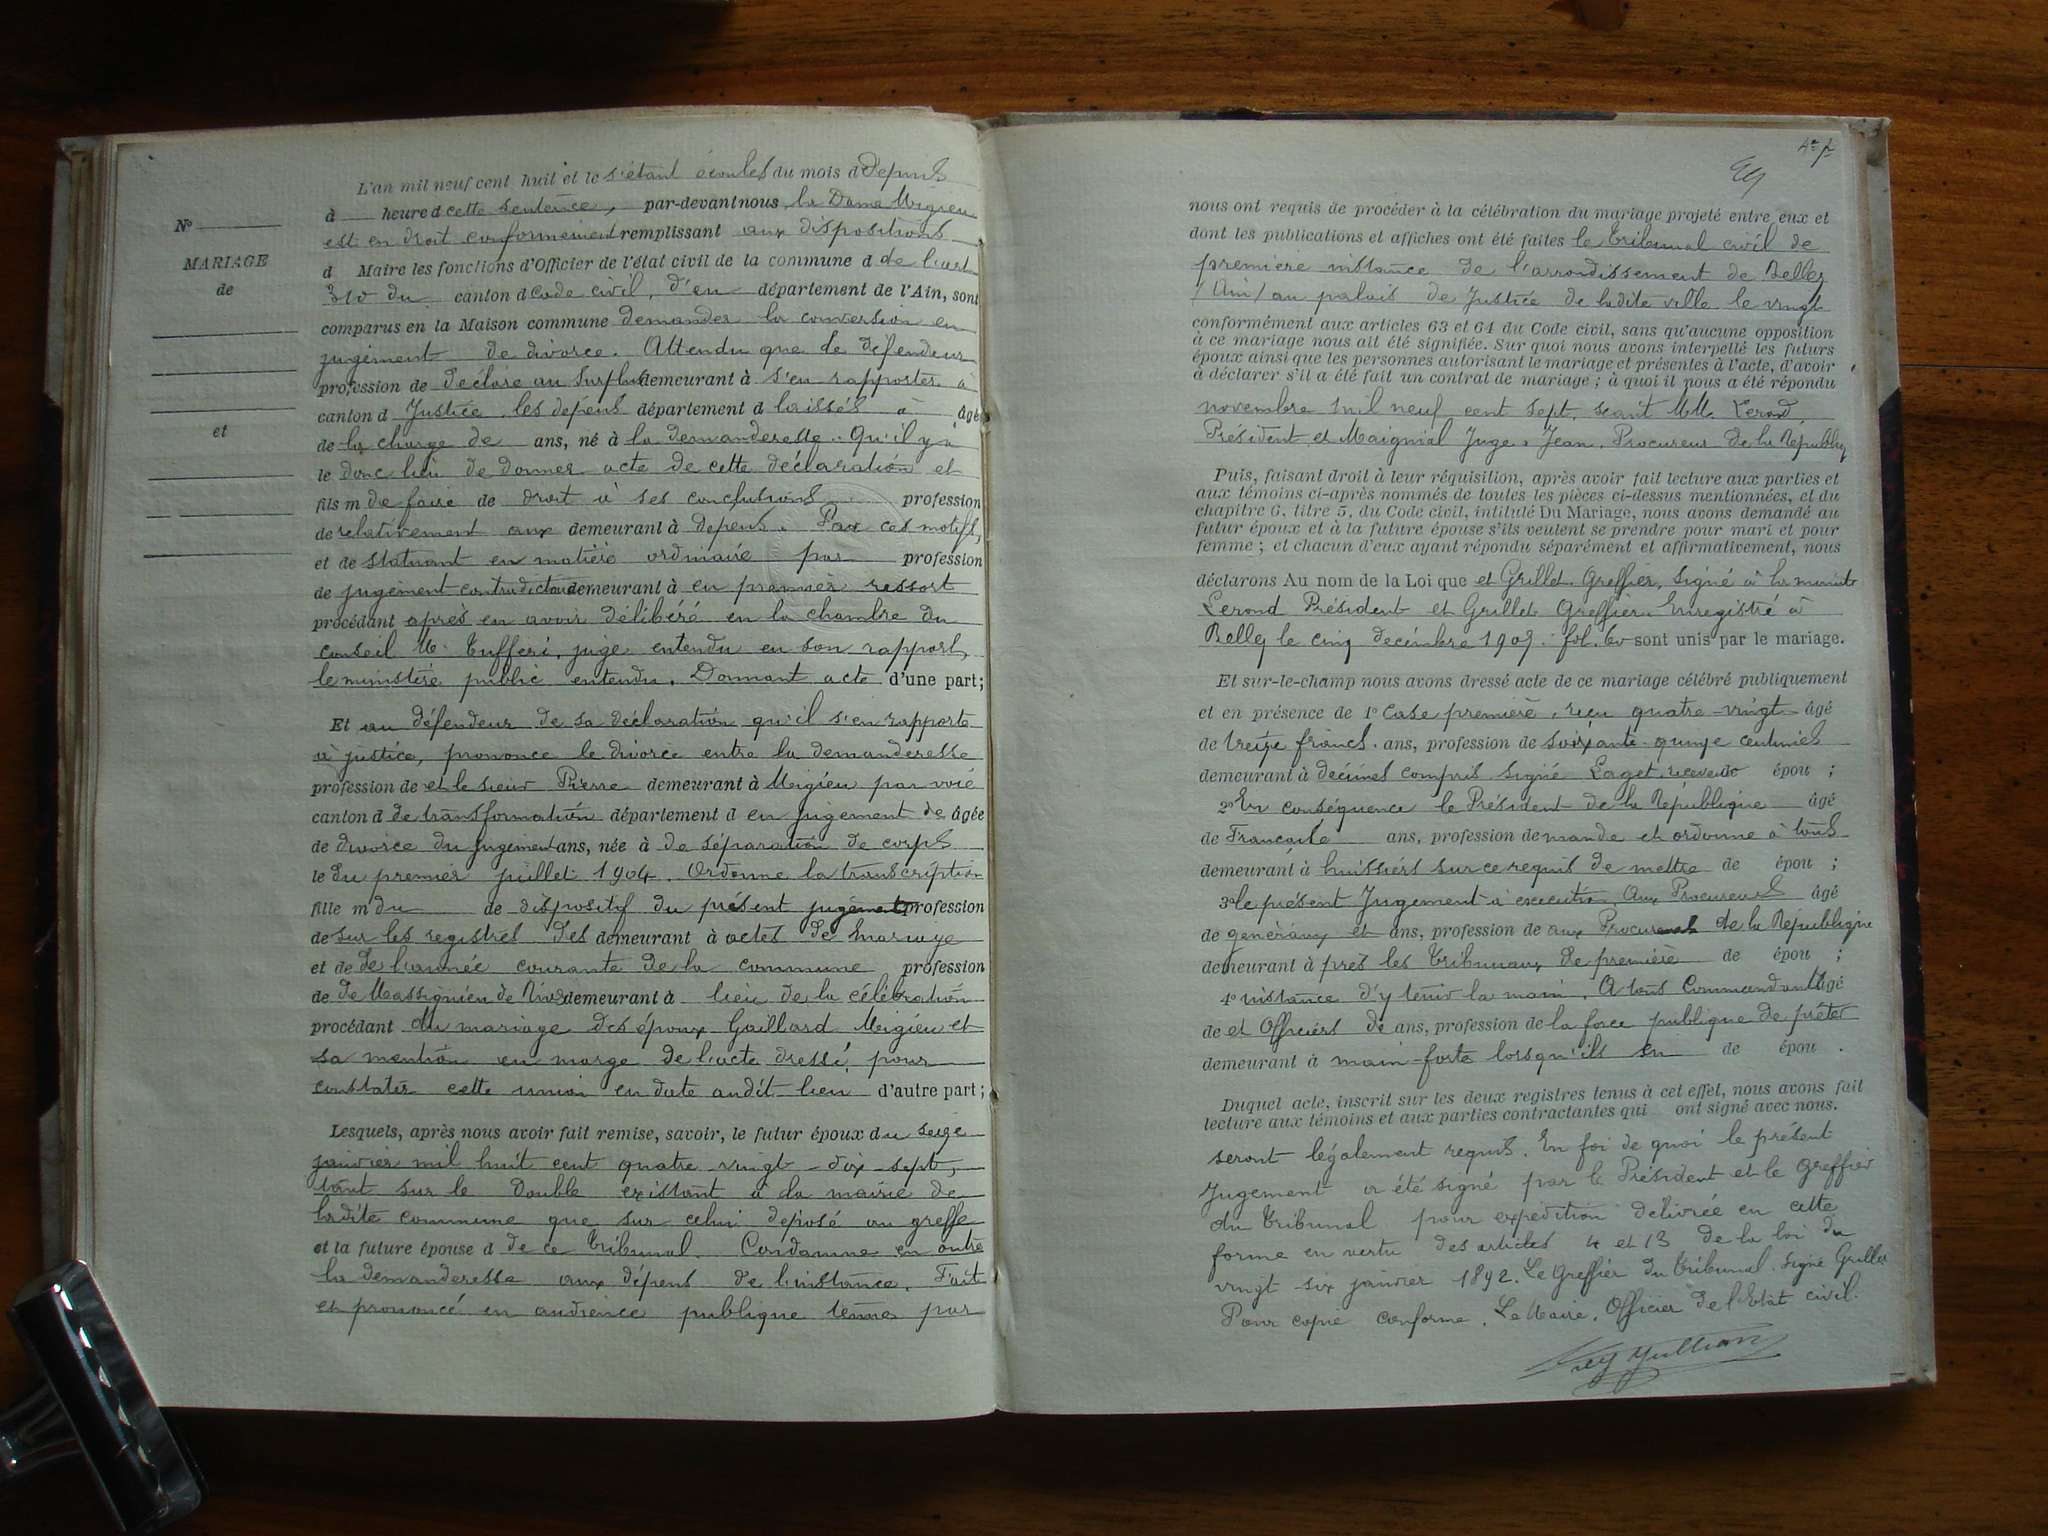 L'an mil neuf cent huit et le s'étant écoulés du mois d depuis
N° à heure d cette sentence, par-devant nous, la Dame Migieu
est en droit conformement remplissant aux dispositions
MARIAGE
d Maire les fonctions d'Officier de l'état civil de la commune d de l'art
de
310 du canton d Code civil, d'en département de l'Ain, sont
comparus en la Maison commune demander la conversion en
jugement de divorce. Attendu que le défendeur
profession de déclare au surplus demeurant à s'en rapporter à
canton d Justice, les depens département d laissés à âgé
et
de la charge de ans, né à la demanderesse. Qu'il y a
le donc lieu de donner acte de cette déclaration et
fils m de faire de droit à ses conclusions profession
de relativement aux demeurant à depens. Par ces motifs,
et de statuant en matière ordinaire par profession
de jugement contradictoire demeurant à en premier ressort
procédant après en avoir délibéré en la chambre du
conseil M. Tufferi, juge entendu en son rapport,
le ministère public entendu. Donnant acte d'une part;
Et au défendeur de sa déclaration qu'il s'en rapporte
à justice, prononce le divorce entre la demanderesse
profession de et le sieur Pierre demeurant à Migieu par voie
canton d de transformation département d en jugement de âgée
de divorce du jugement ans, née à de séparation de corps
le du premier juillet 1904. Ordonne la transcription
fille m du de dispositif du présent jugement profession
de sur les registres des demeurant à actes de mariage
et de de l'année courante de la commune profession
de de Massignieu de Rives demeurant à lieu de la célébration
procédant du mariage des époux Gaillard Migieu et
sa mention en marge de l'acte dressé, pour
constater cette union en date audit lieu d'autre part;
Lesquels, après nous avoir fait remise, savoir, le futur époux d du seize
janvier mil huit cent quatre-vingt-dix-sept,
tant sur le double existant à la mairie de
ladite commune que sur celui déposé au greffe
et la future épouse d de ce Tribunal. Condamne en outre
la demanderesse aux dépens de l'instance. Fait
et prononcé en audience publique tenue par
nous ont requis de procéder à la célébration du mariage projeté entre eux et
dont les publications et affiches ont été faites le Tribunal civil de
première instance de l'arrondissement de Belley
(Ain) au palais de Justice de ladite ville le vingt
conformément aux articles 63 et 64 du Code civil, sans qu'aucune opposition
à ce mariage nous ait été signifiée. Sur quoi nous avons interpellé les futurs
époux ainsi que les personnes autorisant le mariage et présentes à l'acte, d'avoir
à déclarer s'il a été fait un contrat de mariage; à quoi il nous a été répondu
novembre mil neuf cent sept, séant MM. Lerond
Président et Maignial Juge, Jean, Procureur de la Républiq
Puis, faisant droit à leur réquisition, après avoir fait lecture aux parties et
aux témoins ci-après nommés de toutes les pièces ci-dessus mentionnées, et du
chapitre 6, titre 5, du Code civil, intitulé Du Mariage, nous avons demandé au
futur époux et à la future épouse s'ils veulent se prendre pour mari et pour
femme; et chacun d'eux ayant répondu séparément et affirmativement, nous
déclarons Au nom de la Loi que et Grillet, Greffier, signé à la minute
Lerond Président et Grillet Greffier. Enregistré à
Belley le cinq décembre 1907. fol. 60 sont unis par le mariage.
Et sur-le-champ nous avons dressé acte de ce mariage célébré publiquement
et en présence de 1° Case première, reçu quatre-vingt âgé
de treize francs. ans, profession de soixante-quinze centimes
demeurant à décimes compris signé Laget, receveur épou ;
2° En conséquence le Président de la République âgé
de Française ans, profession de mande et ordonne à tous
demeurant à huissiers sur ce requis de mettre de épou ;
3° le présent Jugement à exécution, Aux Procureurs âgé
de généraux et ans, profession de aux Procureurs de la République
demeurant à près les Tribunaux de première de épou ;
4° instance d'y tenir la main, A tous Commandants âgé
de et Officiers de ans, profession de la force publique de prêter
demeurant à main-forte lorsqu'ils en de épou .
Duquel acte, inscrit sur les deux registres tenus à cet effet, nous avons fait
lecture aux témoins et aux parties contractantes qui ont signé avec nous.
seront légalement requis. En foi de quoi le présent
Jugement a été signé par le Président et le Greffier
du Tribunal pour expedition délivrée en cette
forme en vertu des articles 4 et 13 de la loi du
vingt-six janvier 1892. Le Greffier du Tribunal. signé Grillet
Pour copie conforme, Le Maire, Officier de l'Etat civil.